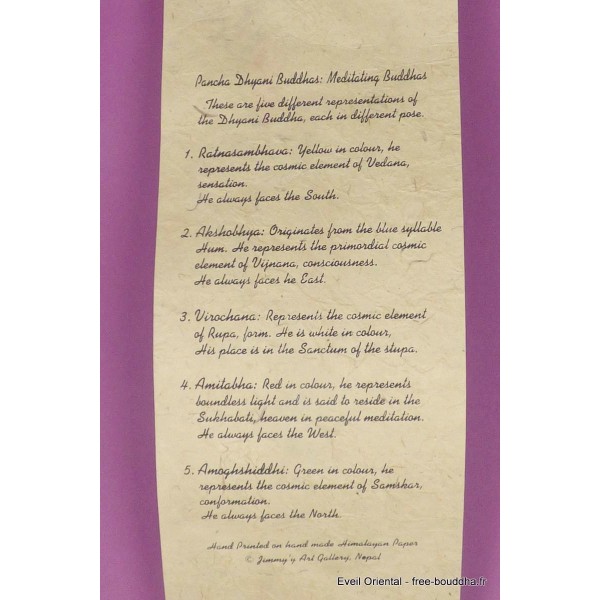 Pancha Dhyani Buddhas: Meditating Buddhas
These are five different representations of
the Dhyani Buddha, each in different pose.
1. Ratnasambhava: Yellow in colour, he
represents the cosmic element of Vedana,
sensation.
He always faces the South.
2. Akshobhya: Originates from the blue syllable
Hum. He represents the primordial cosmic
element of Vijnana, consciousness.
He always faces he East.
3. Virochana: Represents the cosmic element
of Rupa, form. He is white in colour,
His place is in the Sanctum of the stupa.
4. Amitabha: Red in colour, he represents
boundless light and is said to reside in the
Sukhabati, heaven in peaceful meditation.
He always faces the West.
5. Amoghshiddhi: Green in colour, he
represents the cosmic element of Samskar,
conformation.
He always faces the North.
Hand Printed on hand made Himalayan Paper
© Jimmy'y Art Gallery, Nepal
Eveil Oriental - free-bouddha.fr